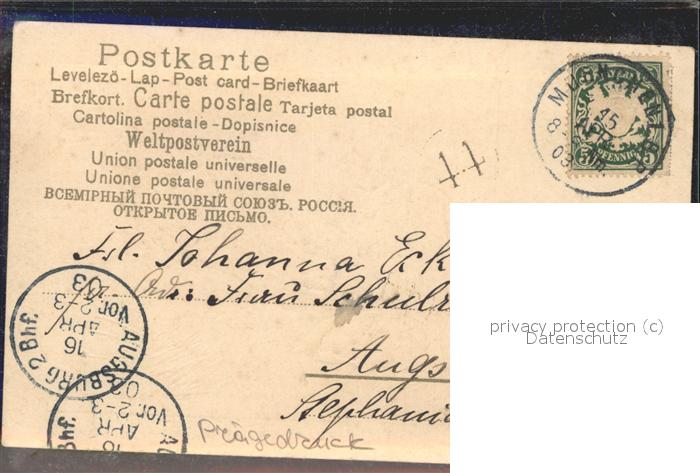 Postkarte
Levelező-Lap-Post card-Briefkaart
Brefkort. Carte postale Tarjeta postal
Cartolina postale-Dopisnice
Weltpostverein
Union postale universelle
Unione postale universale
ВСЕМІРНЫЙ ПОЧТОВЫЙ СОЮЗЪ. РОССІЯ.
ОТКРЫТОЕ ПИСЬМО.
15
APR.
03
PFENNIG
5
Frl. Johanna Eck
Adr. Frau Schulr
Augs
Stephani
Prägedruck
AUGSBURG 2 Bhf.
16
APR
Vor. 2-3
03
16
APR
Vor. 2-3
03
Bhf.
privacy protection (c)
Datenschutz